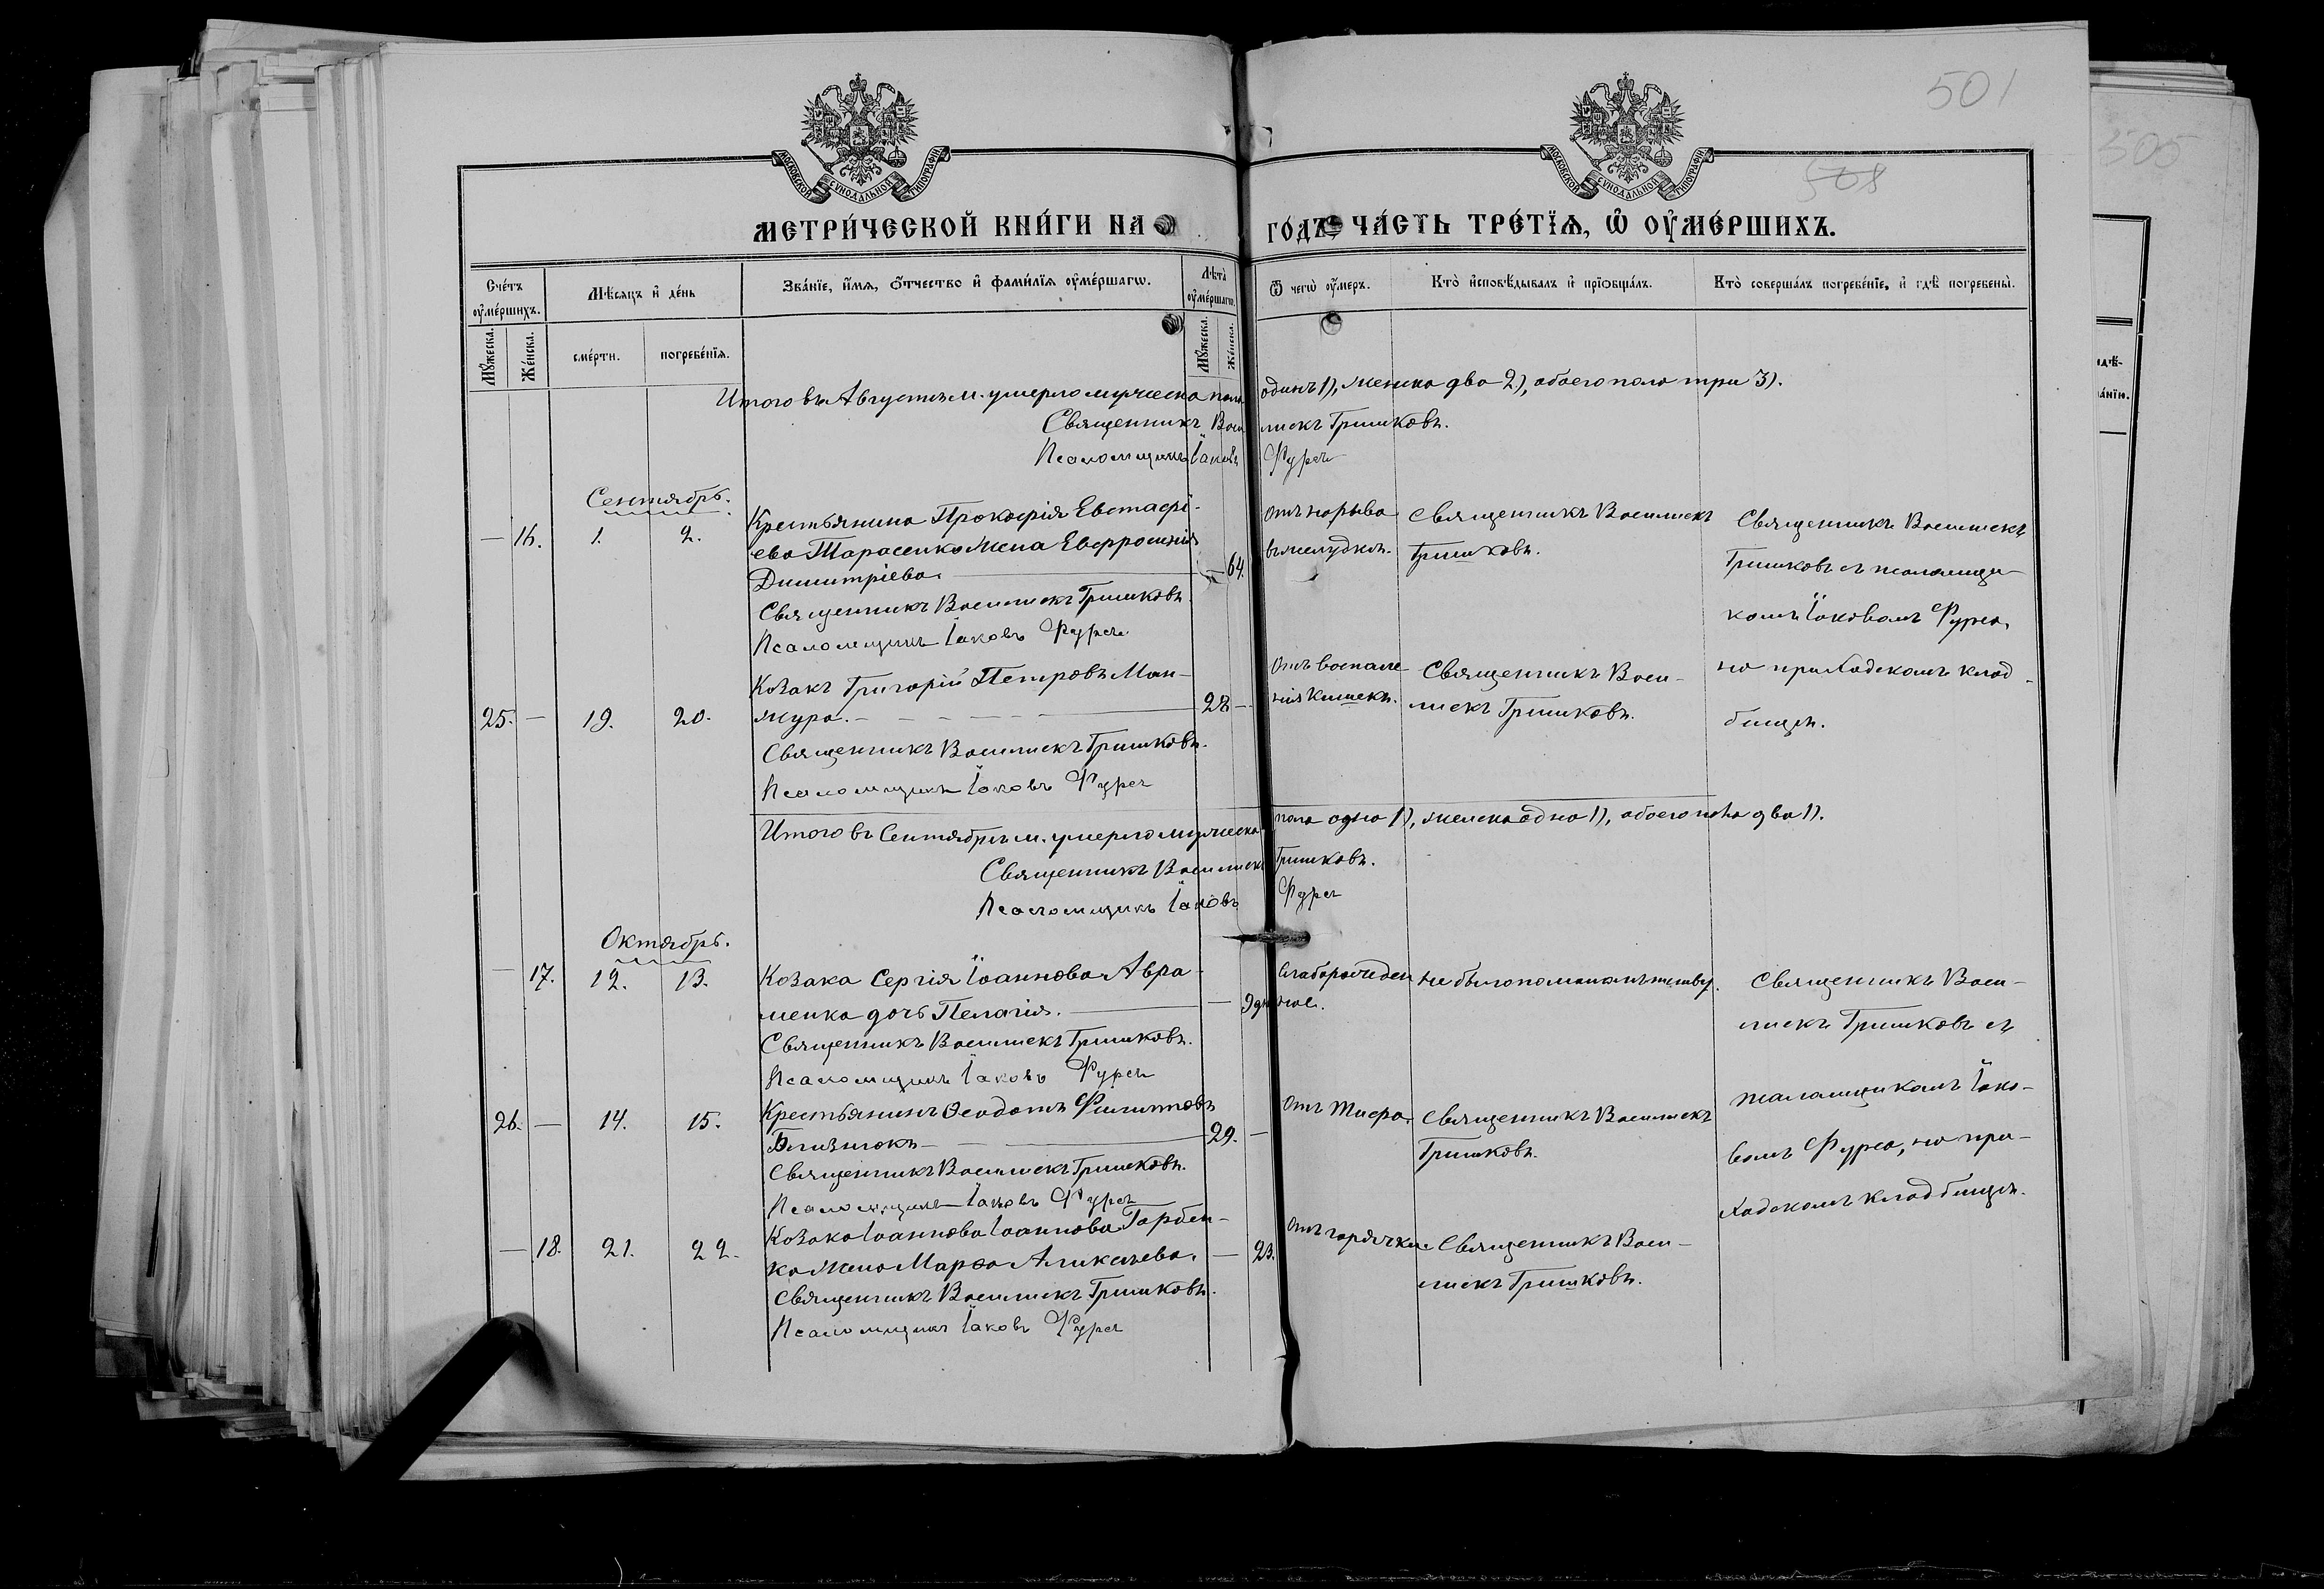 501
508
505
МОСКОВСКОЙ СѴНОДАЛЬНОЙ ТИПОГРАФІИ
МОСКОВСКОЙ СѴНОДАЛЬНОЙ ТИПОГРАФІИ
МЕТРИ́ЧЕСКОЙ КНИ́ГИ НА ГО́ДЪ, ЧА́СТЬ ТРЕ́ТЇѦ, Ѡ҆ ОУ҆МЕ́РШИХЪ.
Сче́тъ оу҆ме́ршихъ.
Мѣ́сяцъ и҆ де́нь
Зва́нїе, и҆́мѧ, ѻ҆́тчество и҆ фами́лїѧ оу҆ме́ршагѡ.
Лѣ́та оу҆ме́ршагѡ.
Ѿ чегѡ̀ оу҆́меръ.
Кто̀ и҆сповѣ́дывалъ и҆ прїѡбща́лъ.
Кто̀ соверша́лъ погребе́нїе, и҆ гдѣ̀ погребены̀.
Мꙋ́жеска.
Же́нска.
сме́рти.
погребе́нїѧ.
Мꙋ́жеска.
Же́нска.
Итого въ Августѣ м. умерло мужеска пола одинъ 1), женска два 2), обоего пола три 3).
Священникъ Василискъ Гришковъ.
Псаломщикъ Іаковъ Фурса
Сентябрь.
— 16. 1. 2.
Крестьянина Прокофія Евстафі-
ева Тарасенка жена Евфросинія
Димитріева. — 64.
Священникъ Василискъ Гришковъ.
Псаломщикъ Іаковъ Фурса
отъ нарыва
въ желудкѣ.
Священникъ Василискъ
Гришковъ.
Священникъ Василискъ
Гришковъ съ псаломщи-
комъ Іаковомъ Фурса,
на приходскомъ клад-
бищѣ.
25. — 19. 20.
Козакъ Григорій Петровъ Ман-
жура. — 28 —
Священникъ Василискъ Гришковъ.
Псаломщикъ Іаковъ Фурса
Отъ воспале-
нія кишекъ.
Священникъ Васи-
лискъ Гришковъ.
Итого въ Сентябрѣ м. умерло мужеска пола одно 1), женска одно 1), обоего пола два 1).
Священникъ Василискъ Гришковъ.
Псаломщикъ Іаковъ Фурса
Октябрь.
— 17. 12. 13.
Козака Сергія Іоаннова Авра-
менка дочь Пелагія. — 9 дн
Священникъ Василискъ Гришковъ.
Псаломщикъ Іаковъ Фурса
Слаборожден
ное.
не было по малолѣтству.
Священникъ Васи-
лискъ Гришковъ съ
псаломщикомъ Іако-
вомъ Фурса, на при-
ходскомъ кладбищѣ.
26. — 14. 15.
Крестьянинъ Ѳеодотъ Филиповъ
Близнюкъ — 29. —
Священникъ Василискъ Гришковъ.
Псаломщикъ Іаковъ Фурса
Отъ тифа.
Священникъ Василискъ
Гришковъ.
— 18. 21. 22.
Козака Іоаннова Іоаннова Горбен-
ка жена Марѳа Аликсіева. — 23.
Священникъ Василискъ Гришковъ.
Псаломщикъ Іаковъ Фурса
Отъ горячки.
Священникъ Васи-
лискъ Гришковъ.